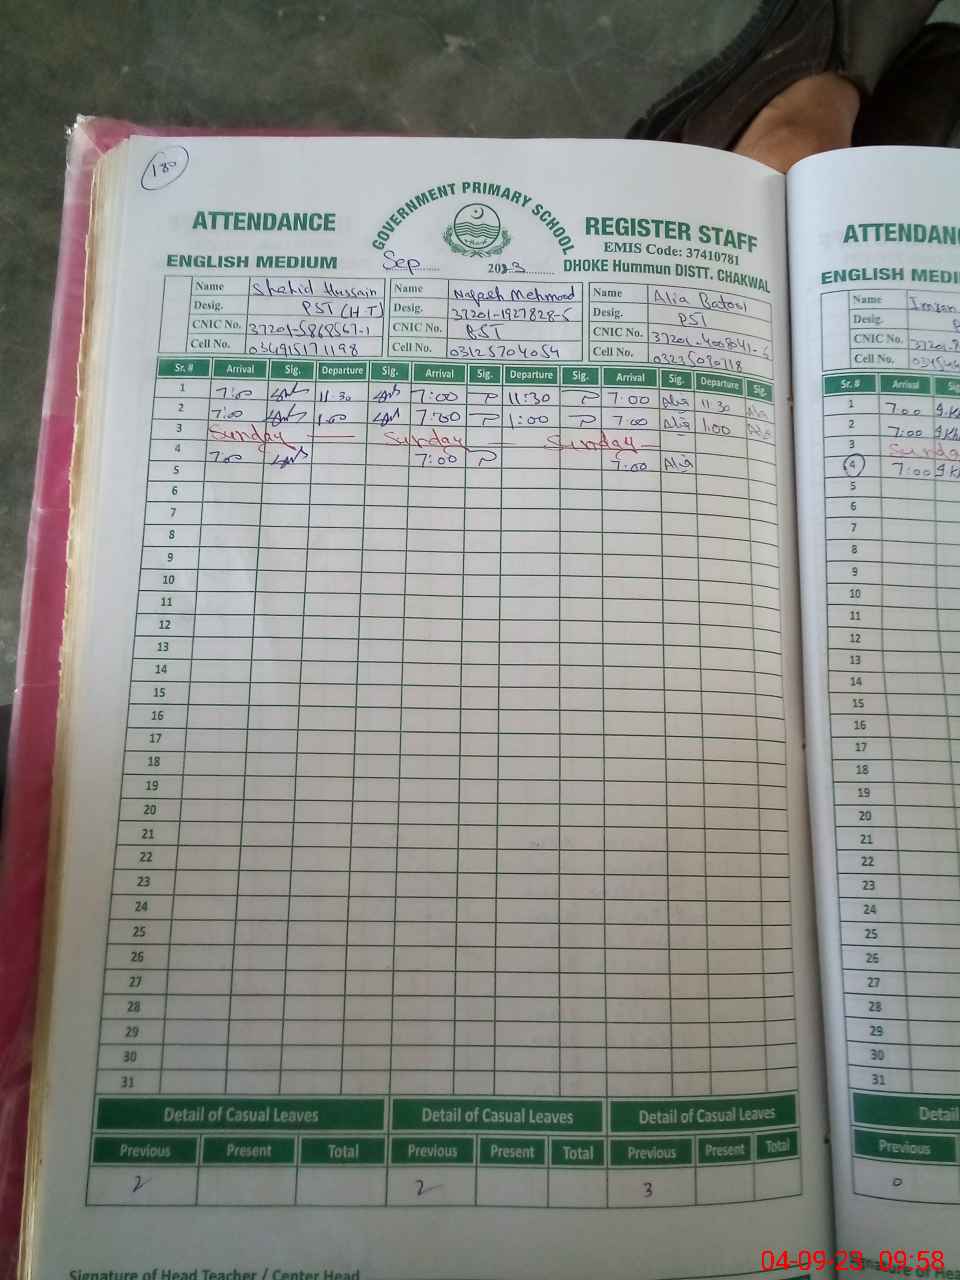 180
GOVERNMENT PRIMARY SCHOOL
ATTENDANCE
REGISTER STAFF
EMIS Code: 37410781
ENGLISH MEDIUM
Sep 2023
DHOKE Hummun DISTT. CHAKWAL
Name Shahid Hussain Name Mehmood Name Alia Batool
Desig. PST (H T) Desig. 37201-1927828-5 Desig. PST
CNIC No. 37201-5868567-1 CNIC No. PST CNIC No.
Cell No. 034915171198 Cell No. 03125704054 Cell No. 03235090718
Sr. # Arrival Sig. Departure Sig. Arrival Sig. Departure Sig. Arrival Sig. Departure Sig.
1 7:00 11:30 7:00 11:30 7:00 Alia 11:30 Alia
2 7:00 1:00 7:00 1:00 7:00 Alia 1:00 Alia
3 Sunday Sunday Sunday
4 7:00 7:00 7:00 Alia
5
6
7
8
9
10
11
12
13
14
15
16
17
18
19
20
21
22
23
24
25
26
27
28
29
30
31
Detail of Casual Leaves Detail of Casual Leaves Detail of Casual Leaves
Previous Present Total Previous Present Total Previous Present Total
2 2 3
Signature of Head Teacher / Center Head
ATTENDAN
ENGLISH MEDI
Name Imran
Desig.
CNIC No.
Cell No.
Sr. # Arrival Sig
1 7:00
2 7:00
3 Sunda
4 7:00
5
6
7
8
9
10
11
12
13
14
15
16
17
18
19
20
21
22
23
24
25
26
27
28
29
30
31
Detail
Previous
0
04-09-23 09:58